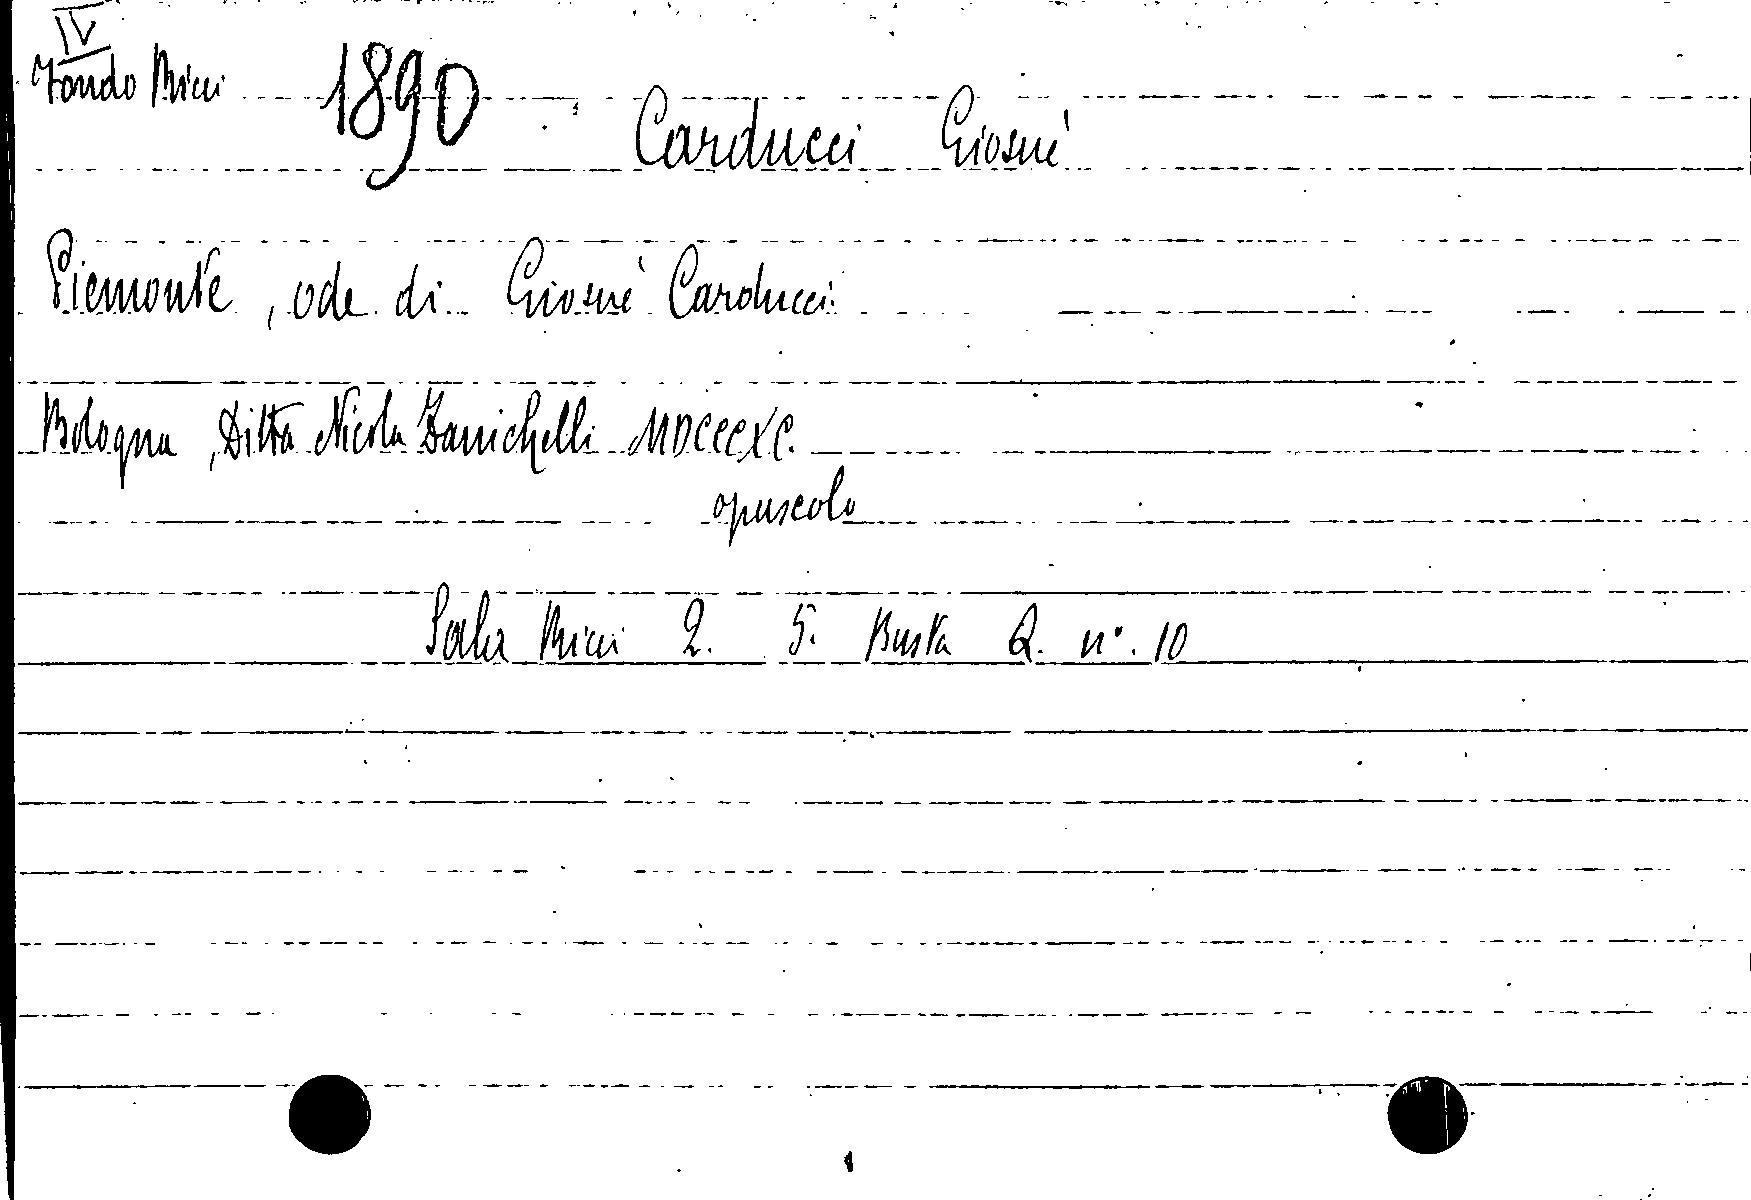 IV
Fondo Ricci 1890 Carducci Giosuè
Piemonte, ode di Giosuè Carducci.
Bologna, Ditta Nicola Zanichelli MDCCCXC.
opuscolo
Sala Ricci 2. 5. Busta Q. n°. 10